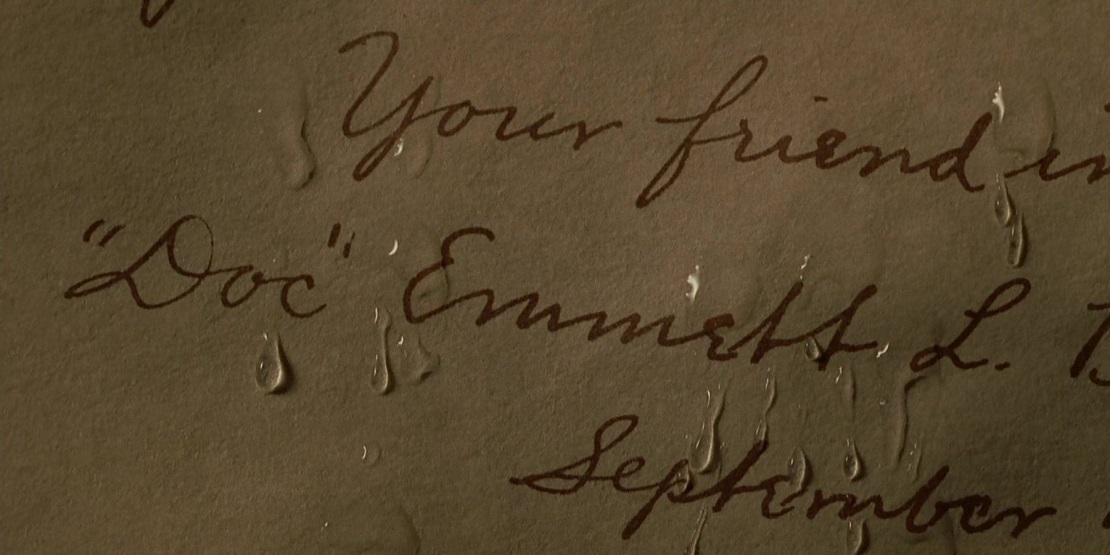 Your friend in
"Doc" Emmett L.
September